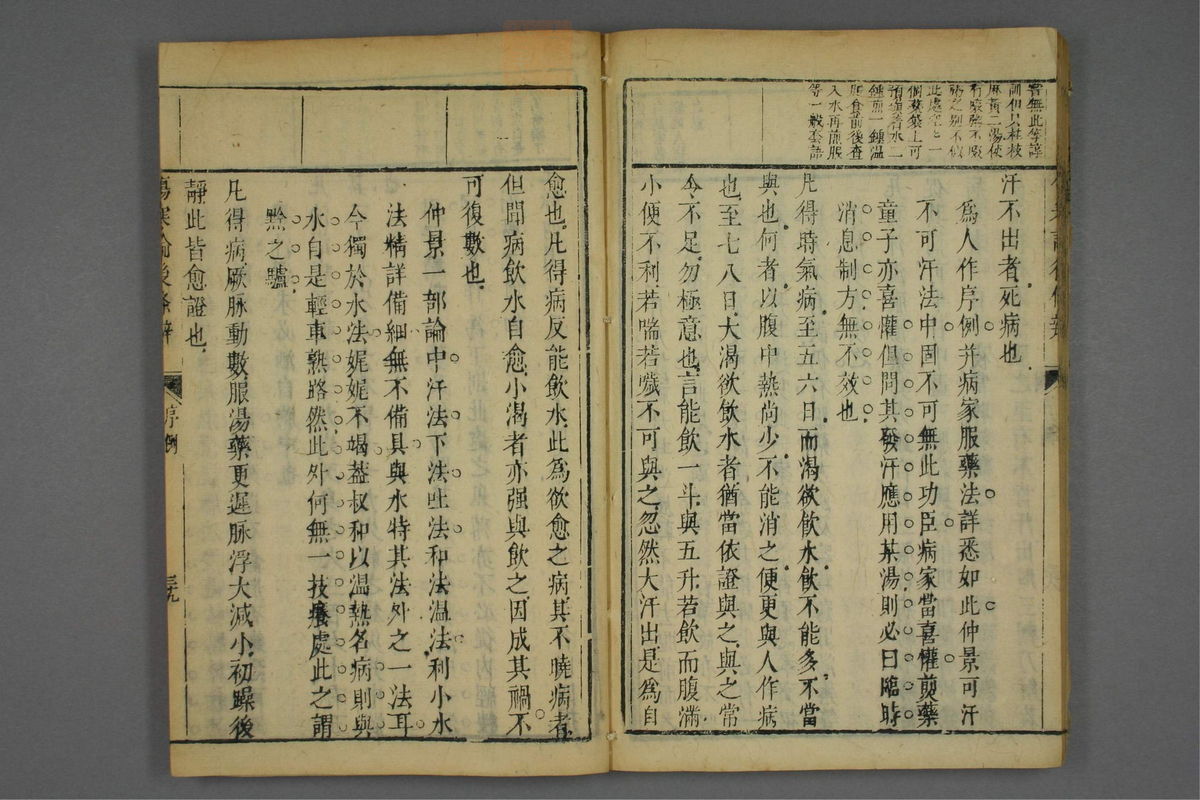 訓但只桂枝
麻黃二湯使
預顧著水二
鍾煎一鍾溫
服食前後査
入水再煎服
等一般套語
汗不出者死病也
為人作序例并病家服藥法詳悉如此仲景可汗
不可汗法中固不可無此功臣病家當喜懽煎藥
童子亦喜懽但問其發汗應用某湯則必曰臨時
消息制方無不效也
凡得時氣病至五六日而渴欲飲水飲不能多不當
與也何者以腹中熱尚少不能消之便更與人作病
也至七八日大渴欲飲水者猶當依證與之與之常
令不足勿極意也言能飲一斗與五升若飲而腹滿
小便不利若喘若噦不可與之忽然大汗出是為自
愈也凡得病反能飲水此為欲愈之病其不曉病者
但聞病飲水自愈小渴者亦强與飲之因成其禍不
可復數也
仲景一部論中汗法下法吐法和法溫法利小水
法精詳備細無不備具與水特其法外之一法耳
今獨於水法娓娓不竭葢叔和以溫熱名病則與
水自是輕車熟路然此外何無一技癢處此之謂
黔之驢
凡得病厥脉動數服湯藥更遲脉浮大減小初躁後
靜此皆愈證也
傷寒論後條辨
序例
三九